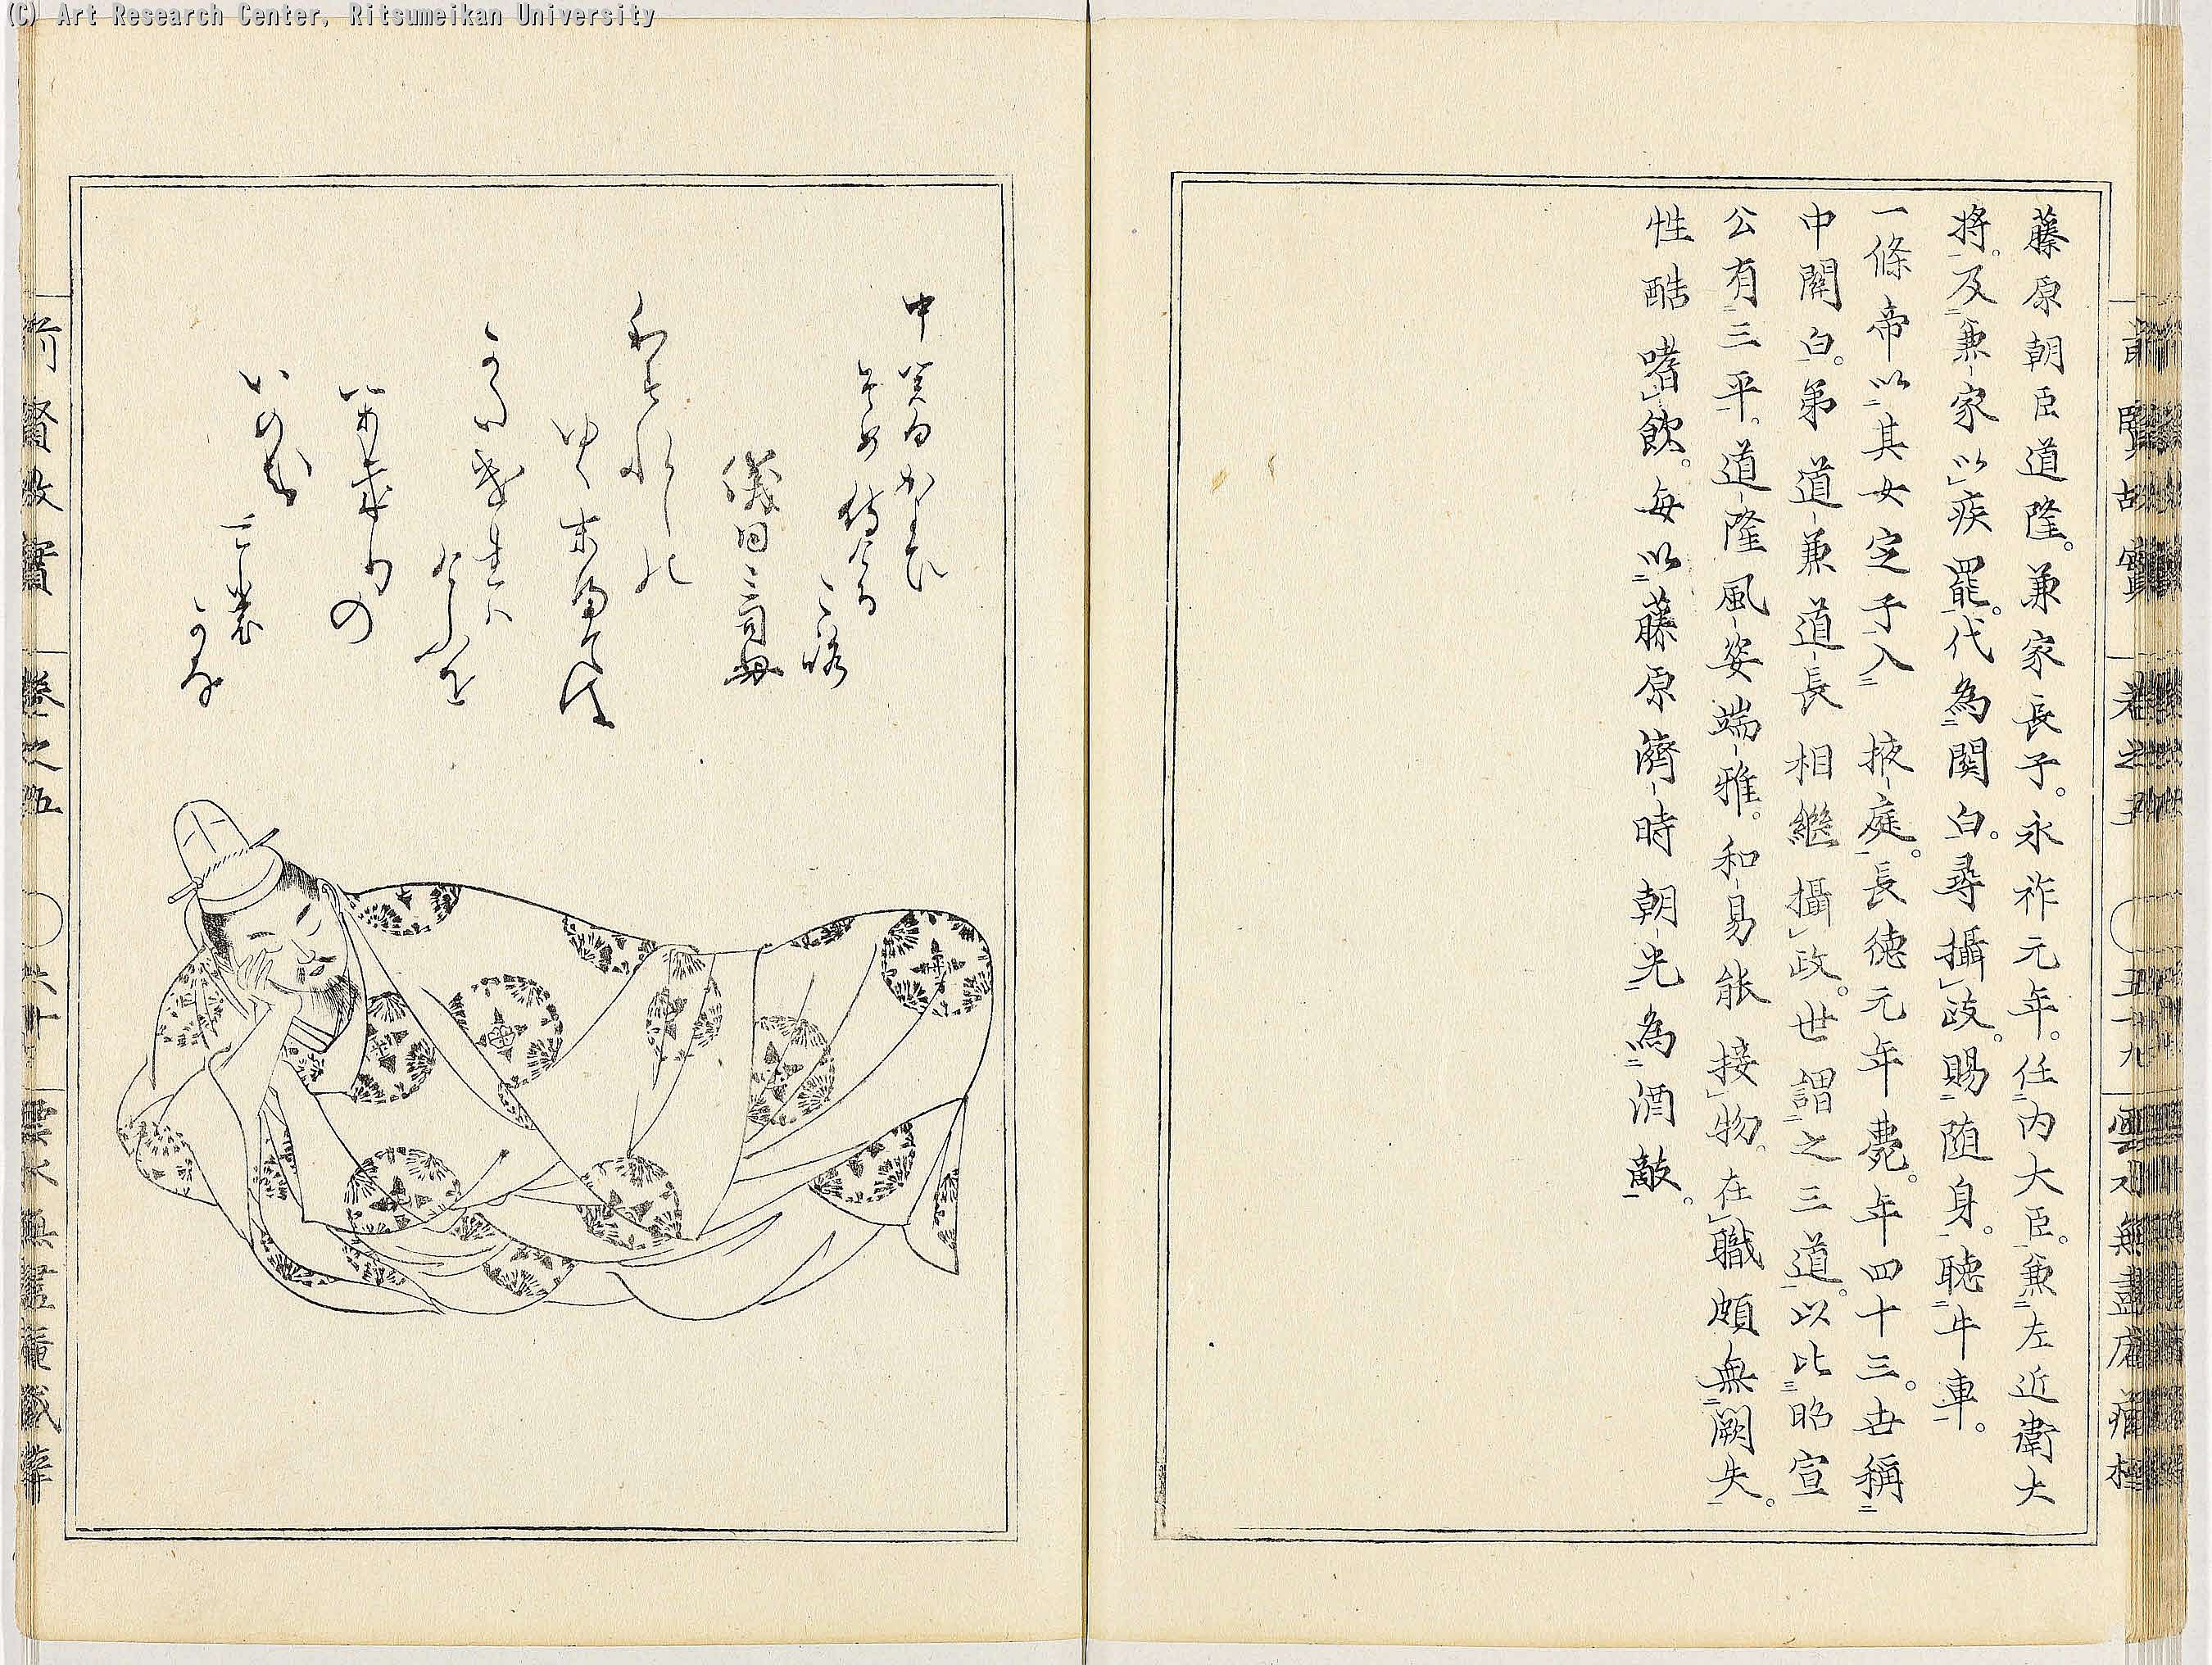 (C) Art Research Center, Ritsumeikan University
藤原朝臣道隆。兼家長子。永祚元年。任内大臣。兼左近衛大
将。及兼家以疾罷。代為関白。尋攝政。賜随身。聴牛車。
一條帝以其女定子入掖庭。長徳元年薨。年四十三。世稱
中関白。弟道兼道長相継攝政。世謂之三道。以比昭宣
公有三平。道隆風姿端雅。和易能接物。在職頗無闕失。
性酷嗜飲。毎以藤原濟時朝光為酒敵。
中関白かよひ
そめ侍ける
ころ
儀同三司母
わすれしの
ゆく末まては
かたけれは
けふを
かきりの
いのち
ともかな
前賢故實
巻之五
五十九
雲水無盡庵
前賢故實
巻之五
六十
雲水無盡庵蔵